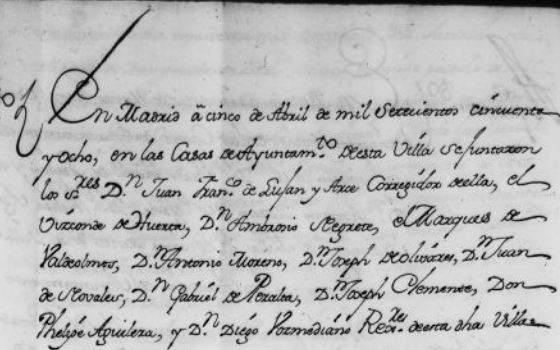 En Madrid â cinco de Abril de mil Setecientos cinquenta
y ocho, en las Casas de Ayuntam.to de esta Villa se juntaron
los S.res D.n Juan Fran.co de Luján y Arce Corregidor de ella, el
Vizconde de Huerta, D.n Ambrosio Negrete, el Marques de
Valdeolmos, D.n Antonio Moreno, D.n Joseph de olivares, D.n Juan
de Novales, D.n Gabriel de Peralta, D.n Joseph Clemente, Don
Phelipe Aguilera, y D.n Diego Vozmediano Rex.res de esta dha Villa